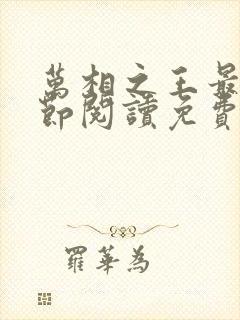 萬相之王最
節閱讀免費
羅華為